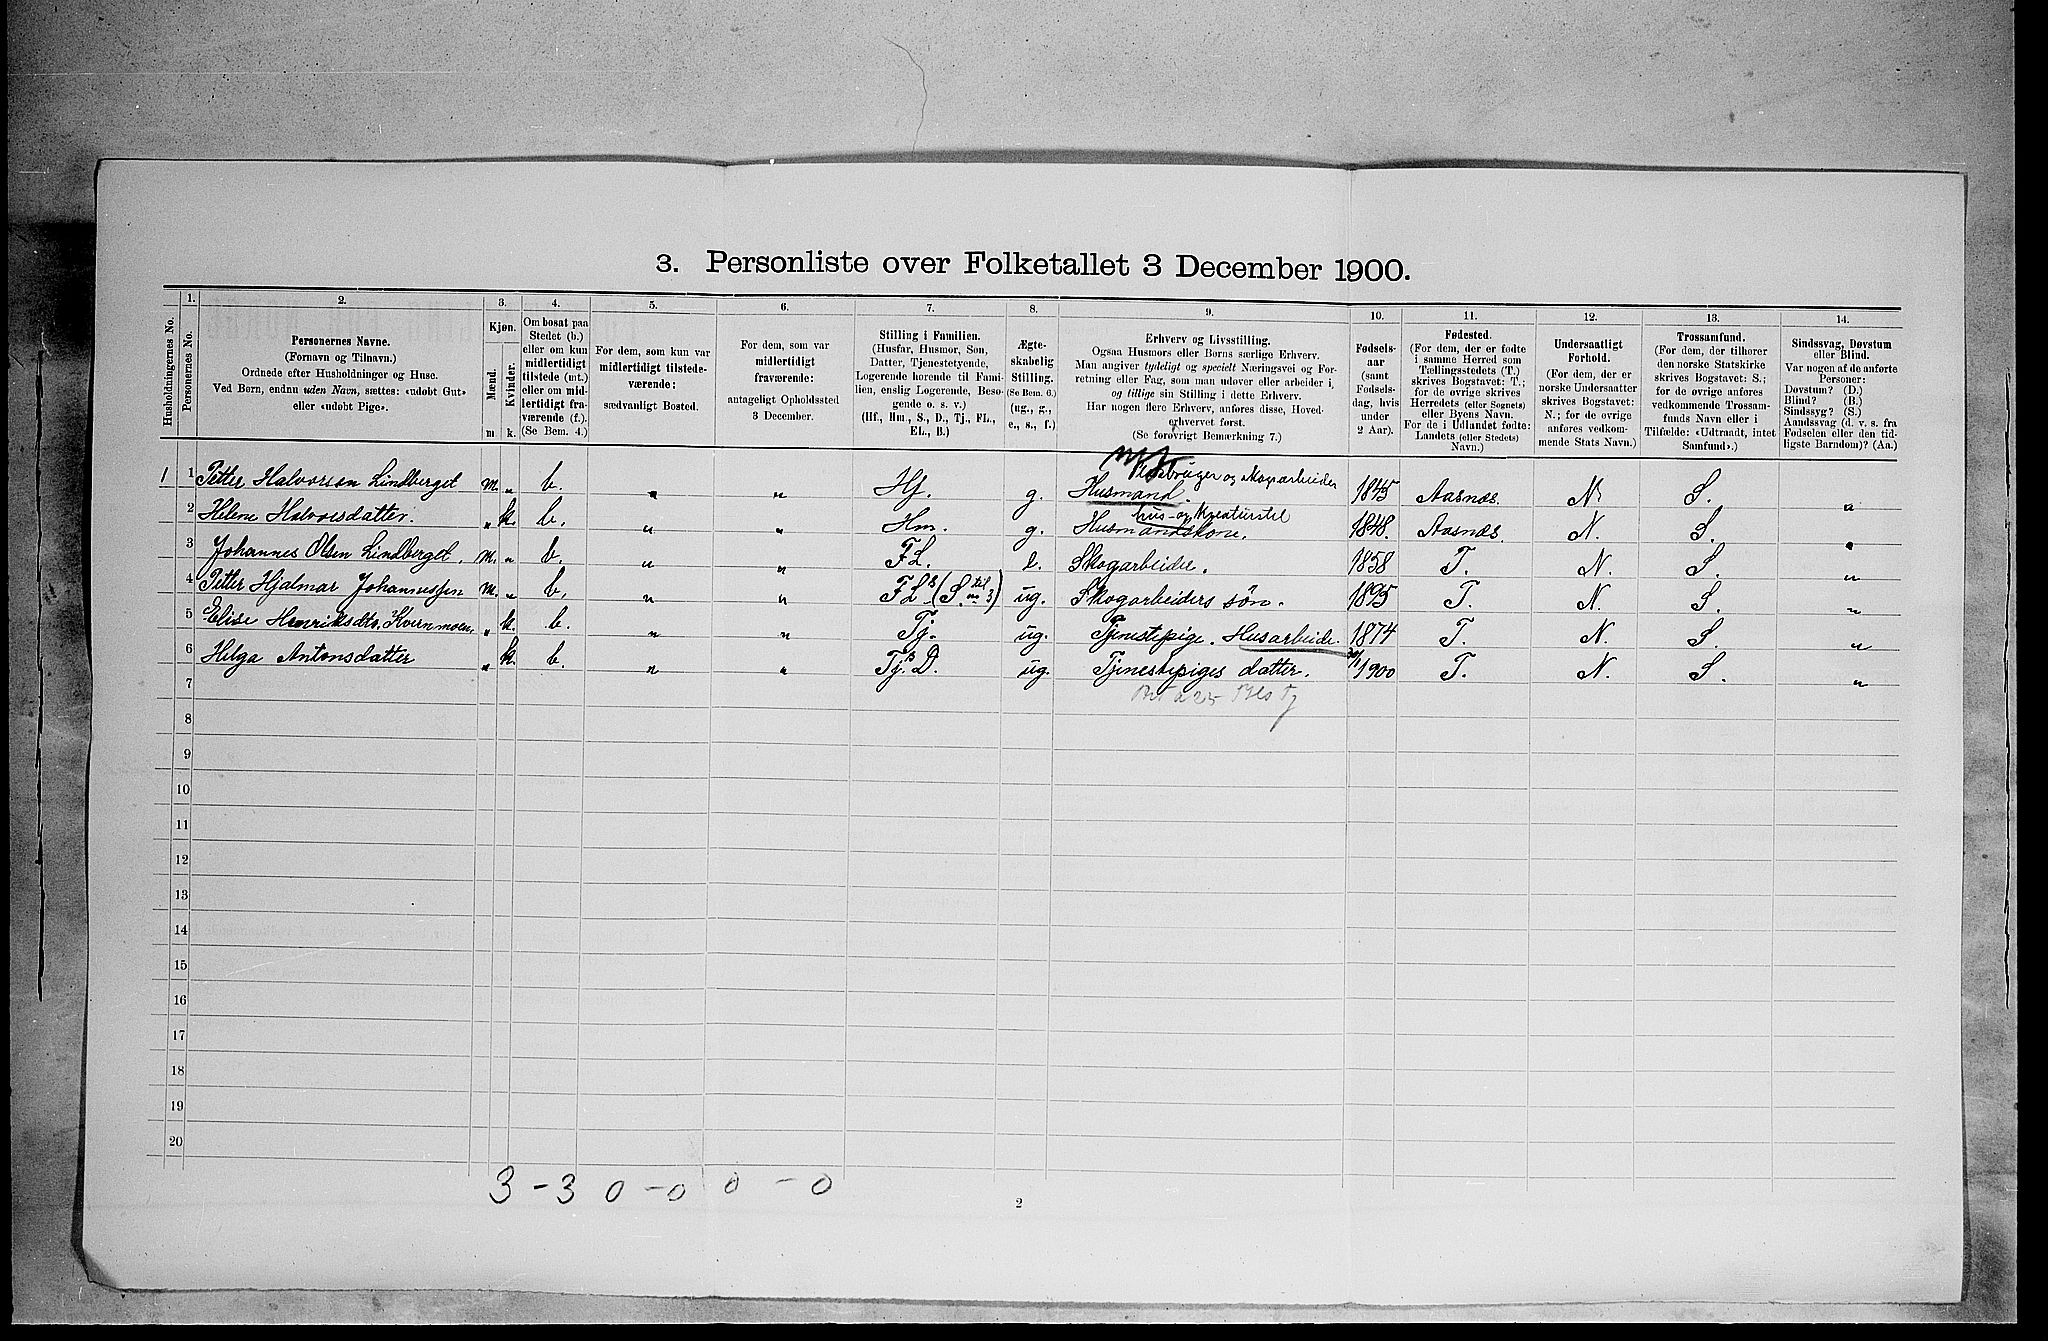 3. Personliste over Folketallet 3 December 1900.
Husholdningernes No.
1.
Personernes No.
2.
Personernes Navne.
(Fornavn og Tilnavn.)
Ordnede efter Husholdninger og Huse.
Ved Børn, endnu uden Navn, sættes: «udøbt Gut»
eller «udøbt Pige».
3.
Kjøn.
Mænd.
Kvinder.
m. k.
4.
Om bosat paa
Stedet (b.)
eller om kun
midlertidigt
tilstede (mt.)
eller om mid-
lertidigt fra-
værende (f.).
(Se Bem. 4.)
5.
For dem, som kun var
midlertidigt tilstede-
værende:
sædvanligt Bosted.
6.
For dem, som var
midlertidigt
fraværende:
antageligt Opholdssted
3 December.
7.
Stilling i Familien.
(Husfar, Husmor, Søn,
Datter, Tjenestetyende,
Logerende hørende til Fami-
lien, enslig Logerende, Besø-
gende o. s. v.)
(Hf., Hm., S., D., Tj., FL.,
EL., B.)
8.
Ægte-
skabelig
Stilling.
(Se Bem. 6.)
(ug., g.,
e., s., f.)
9.
Erhverv og Livsstilling.
Ogsaa Husmors eller Børns særlige Erhverv.
Man angiver tydeligt og specielt Næringsvei og For-
retning eller Fag, som man udøver eller arbeider i,
og tillige sin Stilling i dette Erhverv.
Har nogen flere Erhverv, anføres disse, Hoved-
erhvervet først.
(Se forøvrigt Bemærkning 7.)
10.
Fødsels-
aar
(samt
Fødsels-
dag, hvis
under
2 Aar).
11.
Fødested.
(For dem, der er fødte
i samme Herred som
Tællingsstedets (T.)
skrives Bogstavet: T.;
for de øvrige skrives
Herredets (eller Sognets)
eller Byens Navn.
For de i Udlandet fødte:
Landets (eller Stedets)
Navn.)
12.
Undersaatligt
Forhold.
(For dem, der er
norske Undersaatter
skrives Bogstavet:
N.; for de øvrige
anføres vedkom-
mende Stats Navn.)
13.
Trossamfund.
(For dem, der tilhører
den norske Statskirke
skrives Bogstavet: S.;
for de øvrige anføres
vedkommende Trossam-
funds Navn eller i
Tilfælde: «Udtraadt, intet
Samfund».)
14.
Sindssvag, Døvstum
eller Blind.
Var nogen af de anførte
Personer:
Døvstum? (D.)
Blind? (B.)
Sindssyg? (S.)
Aandssvag (d. v. s. fra
Fødselen eller den tid-
ligste Barndom)? (Aa.)
bruger og skogarbeider
1 1 Petter Halvorsen Lindberget m. „ b. „ „ Hf. g. Husmand. 1845 Aasnæs. N. S. „
hus- og kreaturstel
2 Helene Halvorsdatter. „ k. b. „ „ Hm. g. Husmandskone. 1848. Aasnæs. N. S. „
3 Johannes Olsen Lindberget. m. „ b. „ „ FL. e. Skogarbeider. 1858 T. N. S. „
4 Petter Hjalmar Johannessen m. „ b. „ „ FLs (S. til no 3) ug. Skogarbeiders søn. 1895 T. N. S. „
5 Elise Henriksdtr. Kvernmoen, „ k. b. „ „ Tj. ug. Tjenestepige. Husarbeide. 1874 T. N. S. „
6 Helga Antonsdatter „ k. b. „ „ Tjs D. ug. Tjenestepiges datter. 30/1 1900 T. N. S. „
7
8
9
10
11
12
13
14
15
16
17
18
19
20
3 - 3 0 - 0 0 - 0
2